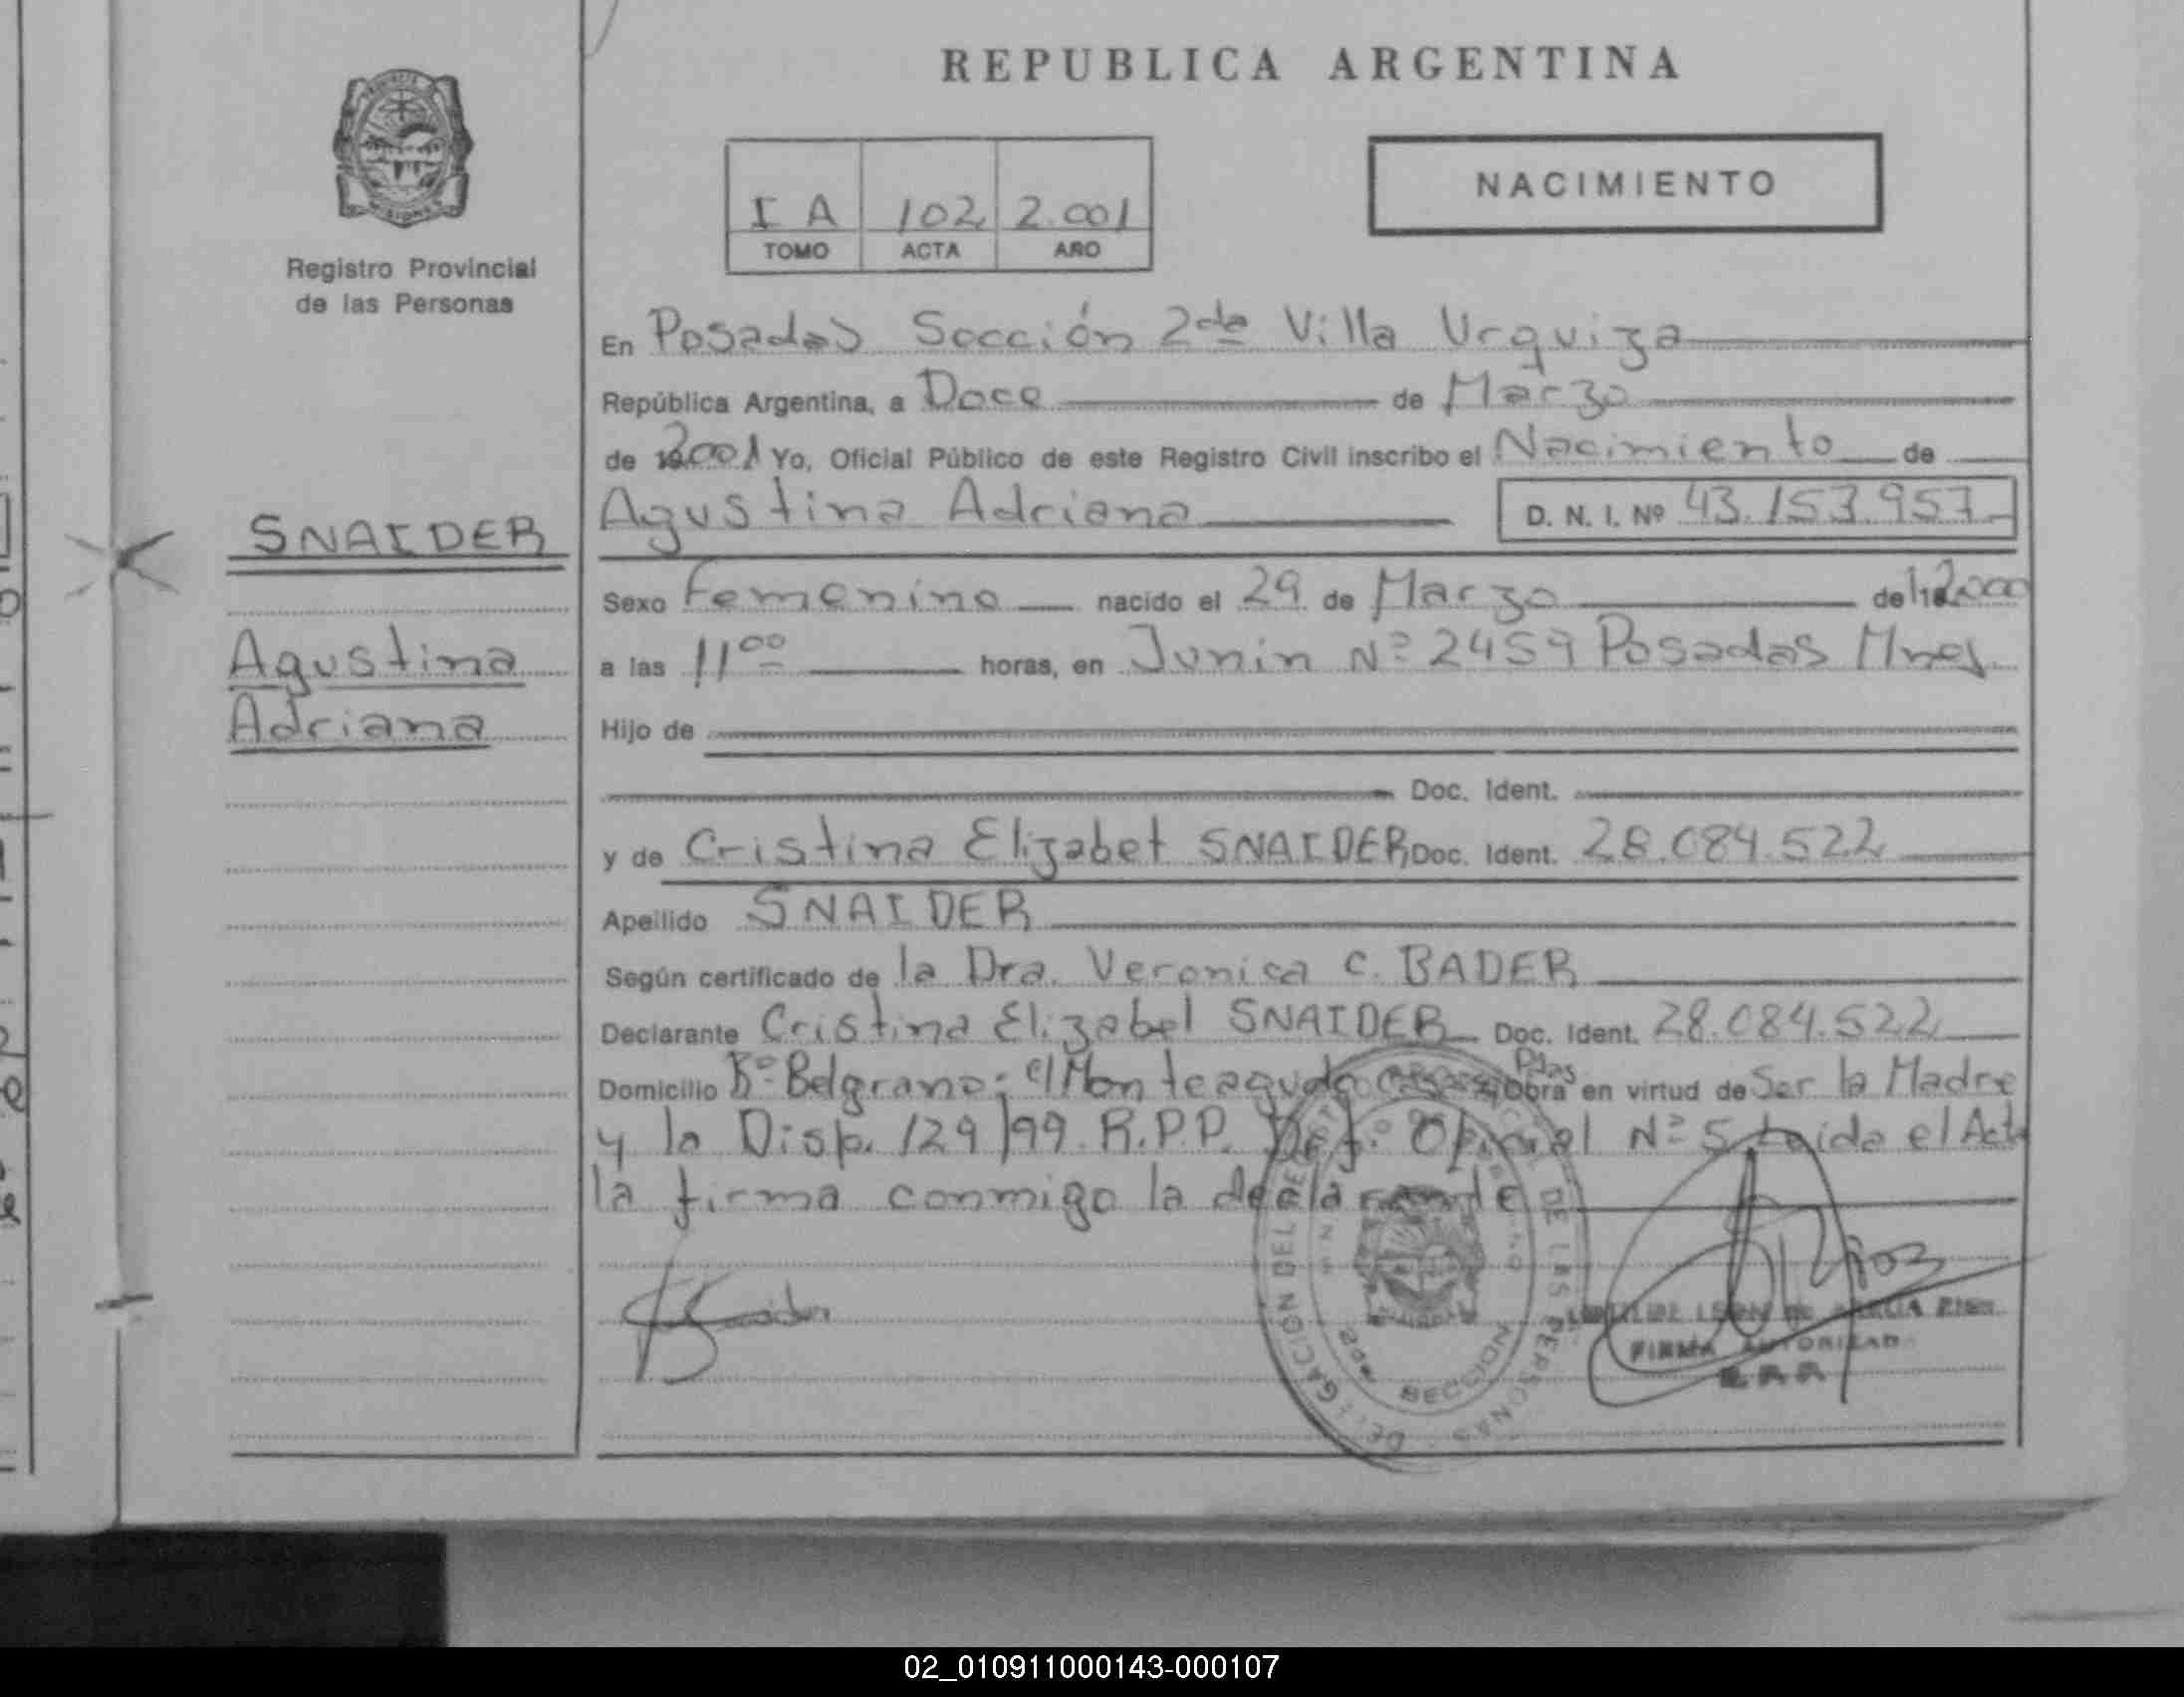 REPUBLICA ARGENTINA
NACIMIENTO
I A 102 2.001
TOMO ACTA AÑO
Registro Provincial
de las Personas
SNAIDER
Agustina
Adriana
En Posadas Sección 2da Villa Urquiza
República Argentina, a Doce de Marzo
de 2001 Yo, Oficial Público de este Registro Civil inscribo el Nacimiento de
Agustina Adriana D. N. I. Nº 43.153.957
Sexo Femenino nacido el 29 de Marzo de 2000
a las 11 00 horas, en Junin Nº 2459 Posadas Mnes.
Hijo de
Doc. Ident.
y de Cristina Elizabet SNAIDER Doc. Ident. 28.084.522
Apellido SNAIDER
Según certificado de la Dra. Veronica C. BADER
Declarante Cristina Elizabet SNAIDER Doc. Ident. 28.084.522
Domicilio Bº Belgrano: c/ Monteagudo Pdas en virtud de Ser la Madre
y la Disp. 129/99 R.P.P. Def. Oficial Nº 5 Leida el Acta
la firma conmigo la declarante
DELEGACION DEL DE LAS PERSONAS
FIRMA AUTORIZAD
02_010911000143-000107